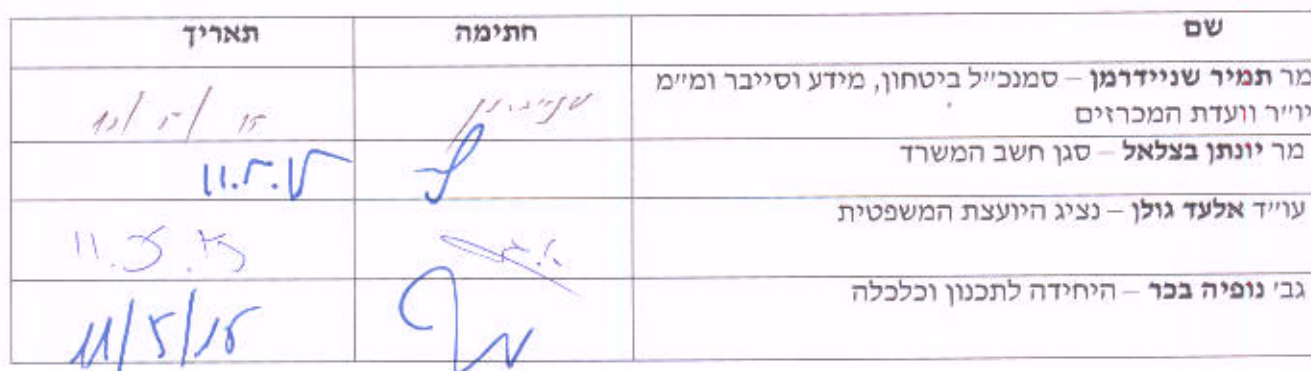 שם חתימה תאריך
מר תמיר שניידרמן – סמנכ״ל ביטחון, מידע וסייבר ומ״מ
יו״ר וועדת המכרזים
מר יונתן בצלאל – סגן חשב המשרד
עו״ד אלעד גולן – נציג היועצת המשפטית
גב׳ נופיה בכר – היחידה לתכנון וכלכלה
11/5/15